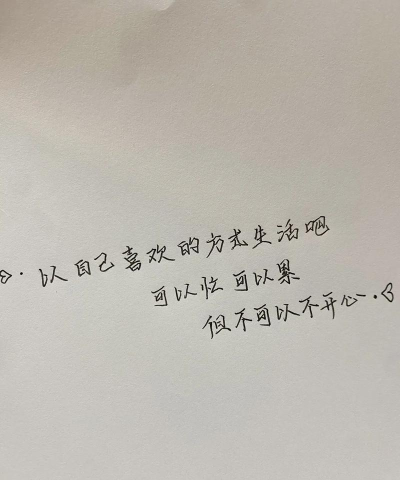 以自己喜欢的方式生活吧
可以忙 可以累
但不可以不开心